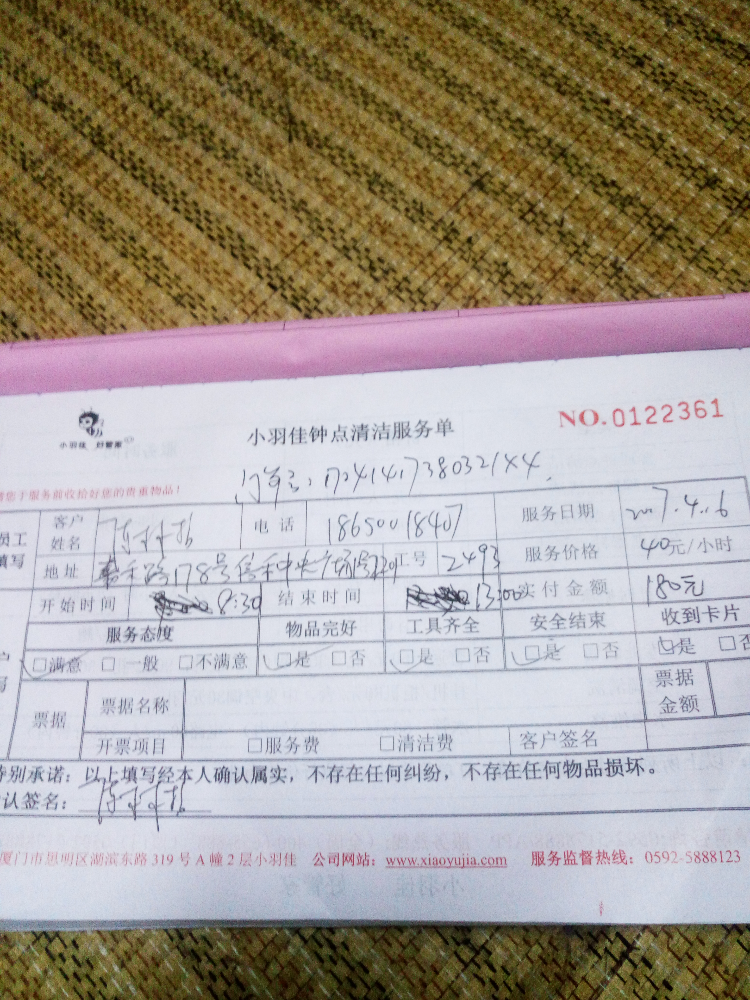 小羽佳 好管家
小羽佳钟点清洁服务单 NO.0122361
请您于服务前收拾好您的贵重物品!
员工填写 客户姓名 电话 18650018407 服务日期 2017.4.16
地址 178号 工号 2493 服务价格 40元/小时
开始时间 8:30 结束时间 13:00 实付金额 180元
服务态度 物品完好 工具齐全 安全结束 收到卡片
□满意 □一般 □不满意 □是 □否 □是 □否 □是 □否 □是 □否
票据 票据名称 票据金额
开票项目 □服务费 □清洁费 客户签名
特别承诺：以上填写经本人确认属实，不存在任何纠纷，不存在任何物品损坏。
确认签名：
厦门市思明区湖滨东路 319 号 A 幢 2 层小羽佳 公司网站：www.xiaoyujia.com 服务监督热线：0592-5888123